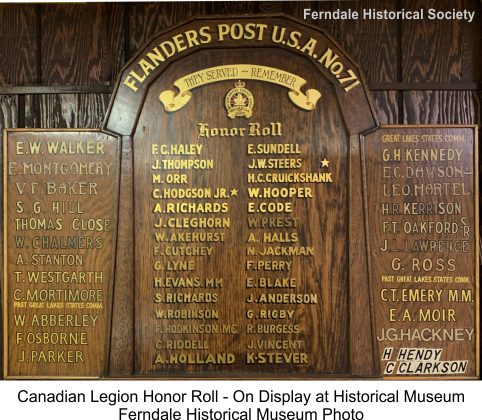 Ferndale Historical Society
FLANDERS POST U.S.A. NO. 71
THEY SERVED — REMEMBER
Honor Roll
E.W. WALKER
E. MONTGOMERY
V.F. BAKER
S.G. HILL
THOMAS CLOSE
W. CHALMERS
A. STANTON
T. WESTGARTH
C. MORTIMORE
PAST GREAT LAKES STATES COMM.
W. ABBERLEY
F. OSBORNE
J. PARKER
F.C. HALEY
J. THOMPSON
M. ORR
C. HODGSON JR. ★
A. RICHARDS
J. CLEGHORN
W. AKEHURST
F. CUTCHEY
G. LYNE
H. EVANS. M.M
S. RICHARDS
W. ROBINSON
F. HODKINSON MC
C. RIDDELL
A. HOLLAND
E. SUNDELL
J.W. STEERS ★
H.C. CRUICKSHANK
W. HOOPER
E. CODE
W. PREST
A. HALLS
N. JACKMAN
F. PERRY
E. BLAKE
J. ANDERSON
G. RIGBY
R. BURGESS
J. VINCENT
K. STEVER
GREAT LAKES STATES COMM.
G.H. KENNEDY
E.C. DAWSON
LEO. MARTEL
H.R. KERRISON
F.T. OAKFORD SR
J.L. LAWRENCE
G. ROSS
PAST GREAT LAKES STATES COMM.
C.T. EMERY M.M.
E.A. MOIR
J.G. HACKNEY
H HENDY
C CLARKSON
Canadian Legion Honor Roll - On Display at Historical Museum
Ferndale Historical Museum Photo